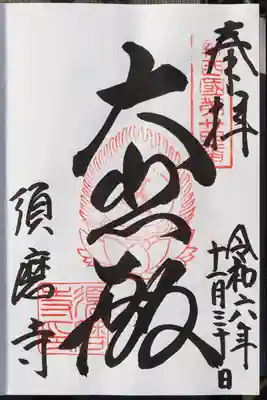 奉拝
大悲殿
令和六年
十一月三十日
須磨寺